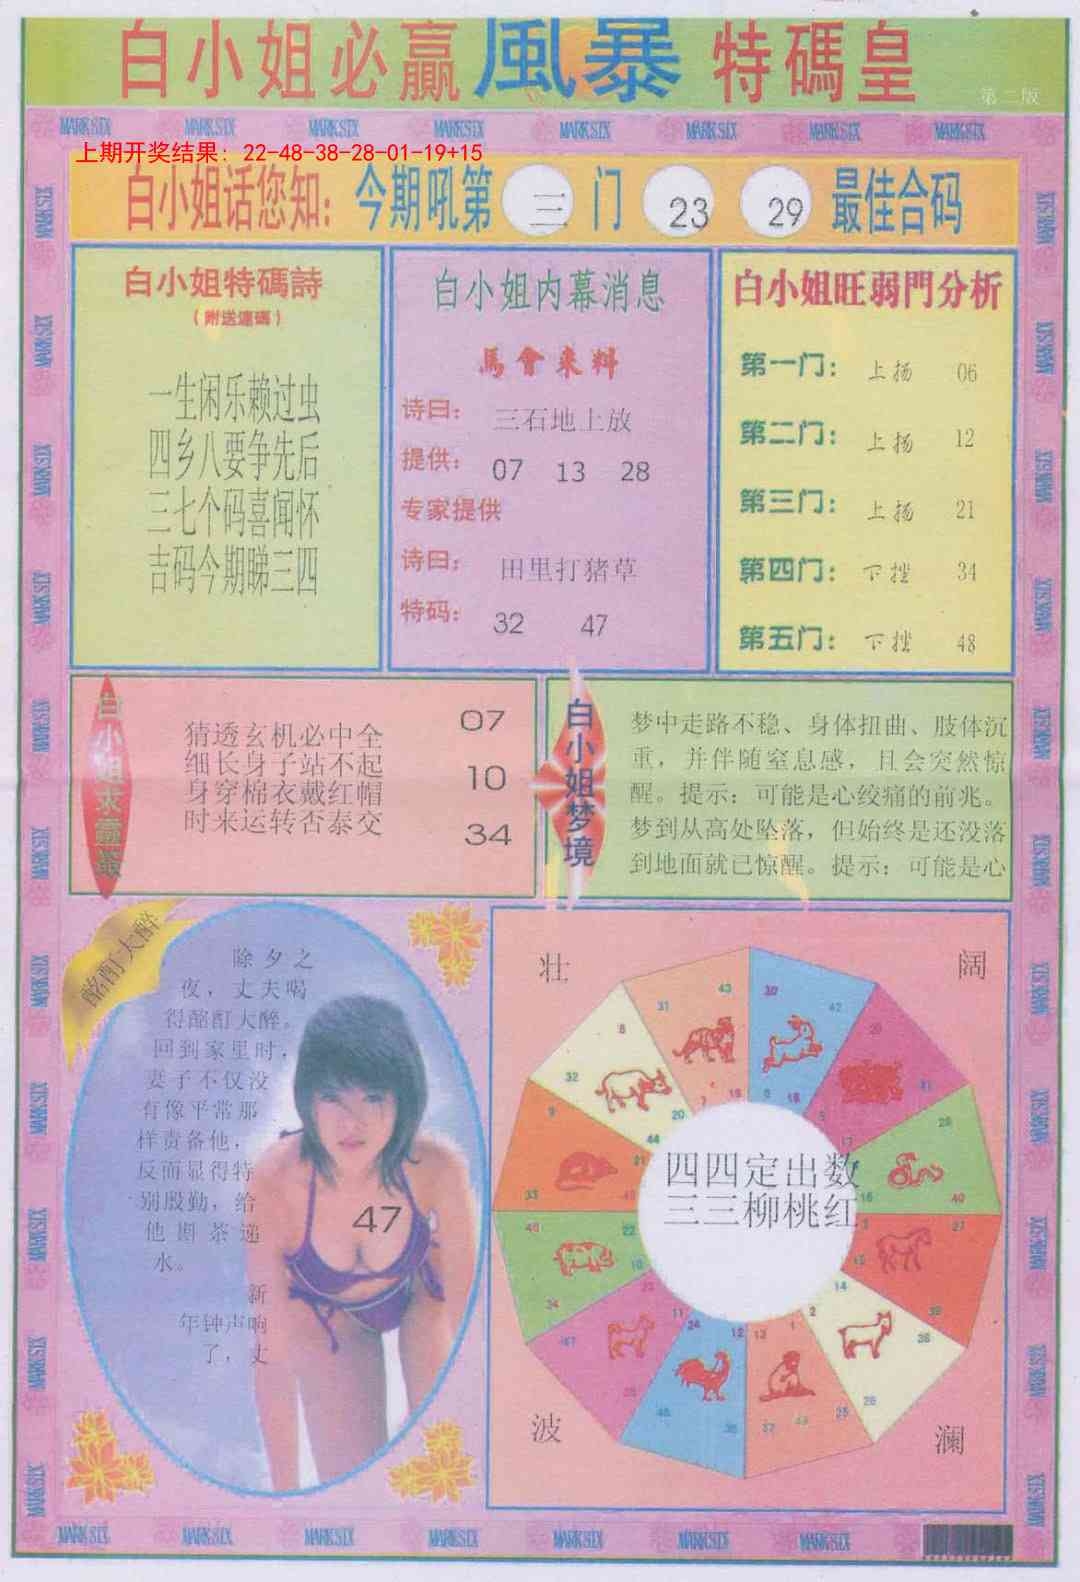 白小姐必赢風暴特碼皇
第二版
MARK SIX MARK SIX MARK SIX MARK SIX MARK SIX MARK SIX MARK SIX MARK SIX
上期开奖结果：22-48-38-28-01-19+15
白小姐话您知：今期吼第三门 23 29 最佳合码
白小姐特碼詩
（附送連碼）
一生闲乐赖过虫
四乡八要争先后
三七个码喜闻怀
吉码今期睇三四
白小姐内幕消息
馬會来料
诗曰：三石地上放
提供：07 13 28
专家提供
诗曰：田里打猪草
特码：32 47
白小姐旺弱門分析
第一门：上扬 06
第二门：上扬 12
第三门：上扬 21
第四门：下挫 34
第五门：下挫 48
猜透玄机必中全
细长身子站不起
身穿棉衣戴红帽
时来运转否泰交
07
10
34
白小姐梦境
梦中走路不稳、身体扭曲、肢体沉
重，并伴随窒息感，且会突然惊
醒。提示：可能是心绞痛的前兆。
梦到从高处坠落，但始终是还没落
到地面就已惊醒。提示：可能是心
酩酊大醉
除夕之
夜，丈夫喝
得酩酊大醉。
回到家里时，
妻子不仅没
有像平常那
样责备他，
反而显得特
别殷勤，给
他斟茶递
水。
新
年钟声响
了，丈
47
壮
阔
四四定出数
三三柳桃红
波
澜
MARK SIX MARK SIX MARK SIX MARK SIX MARK SIX MARK SIX MARK SIX